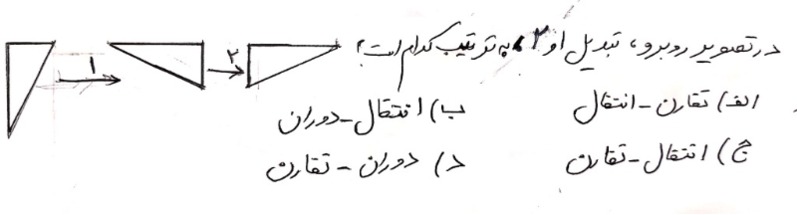 در تصویر روبرو، تبدیل ۱ و ۲ به ترتیب کدام است؟
۱
۲
الف) تقارن - انتقال
ب) انتقال - دوران
ج) انتقال - تقارن
د) دوران - تقارن